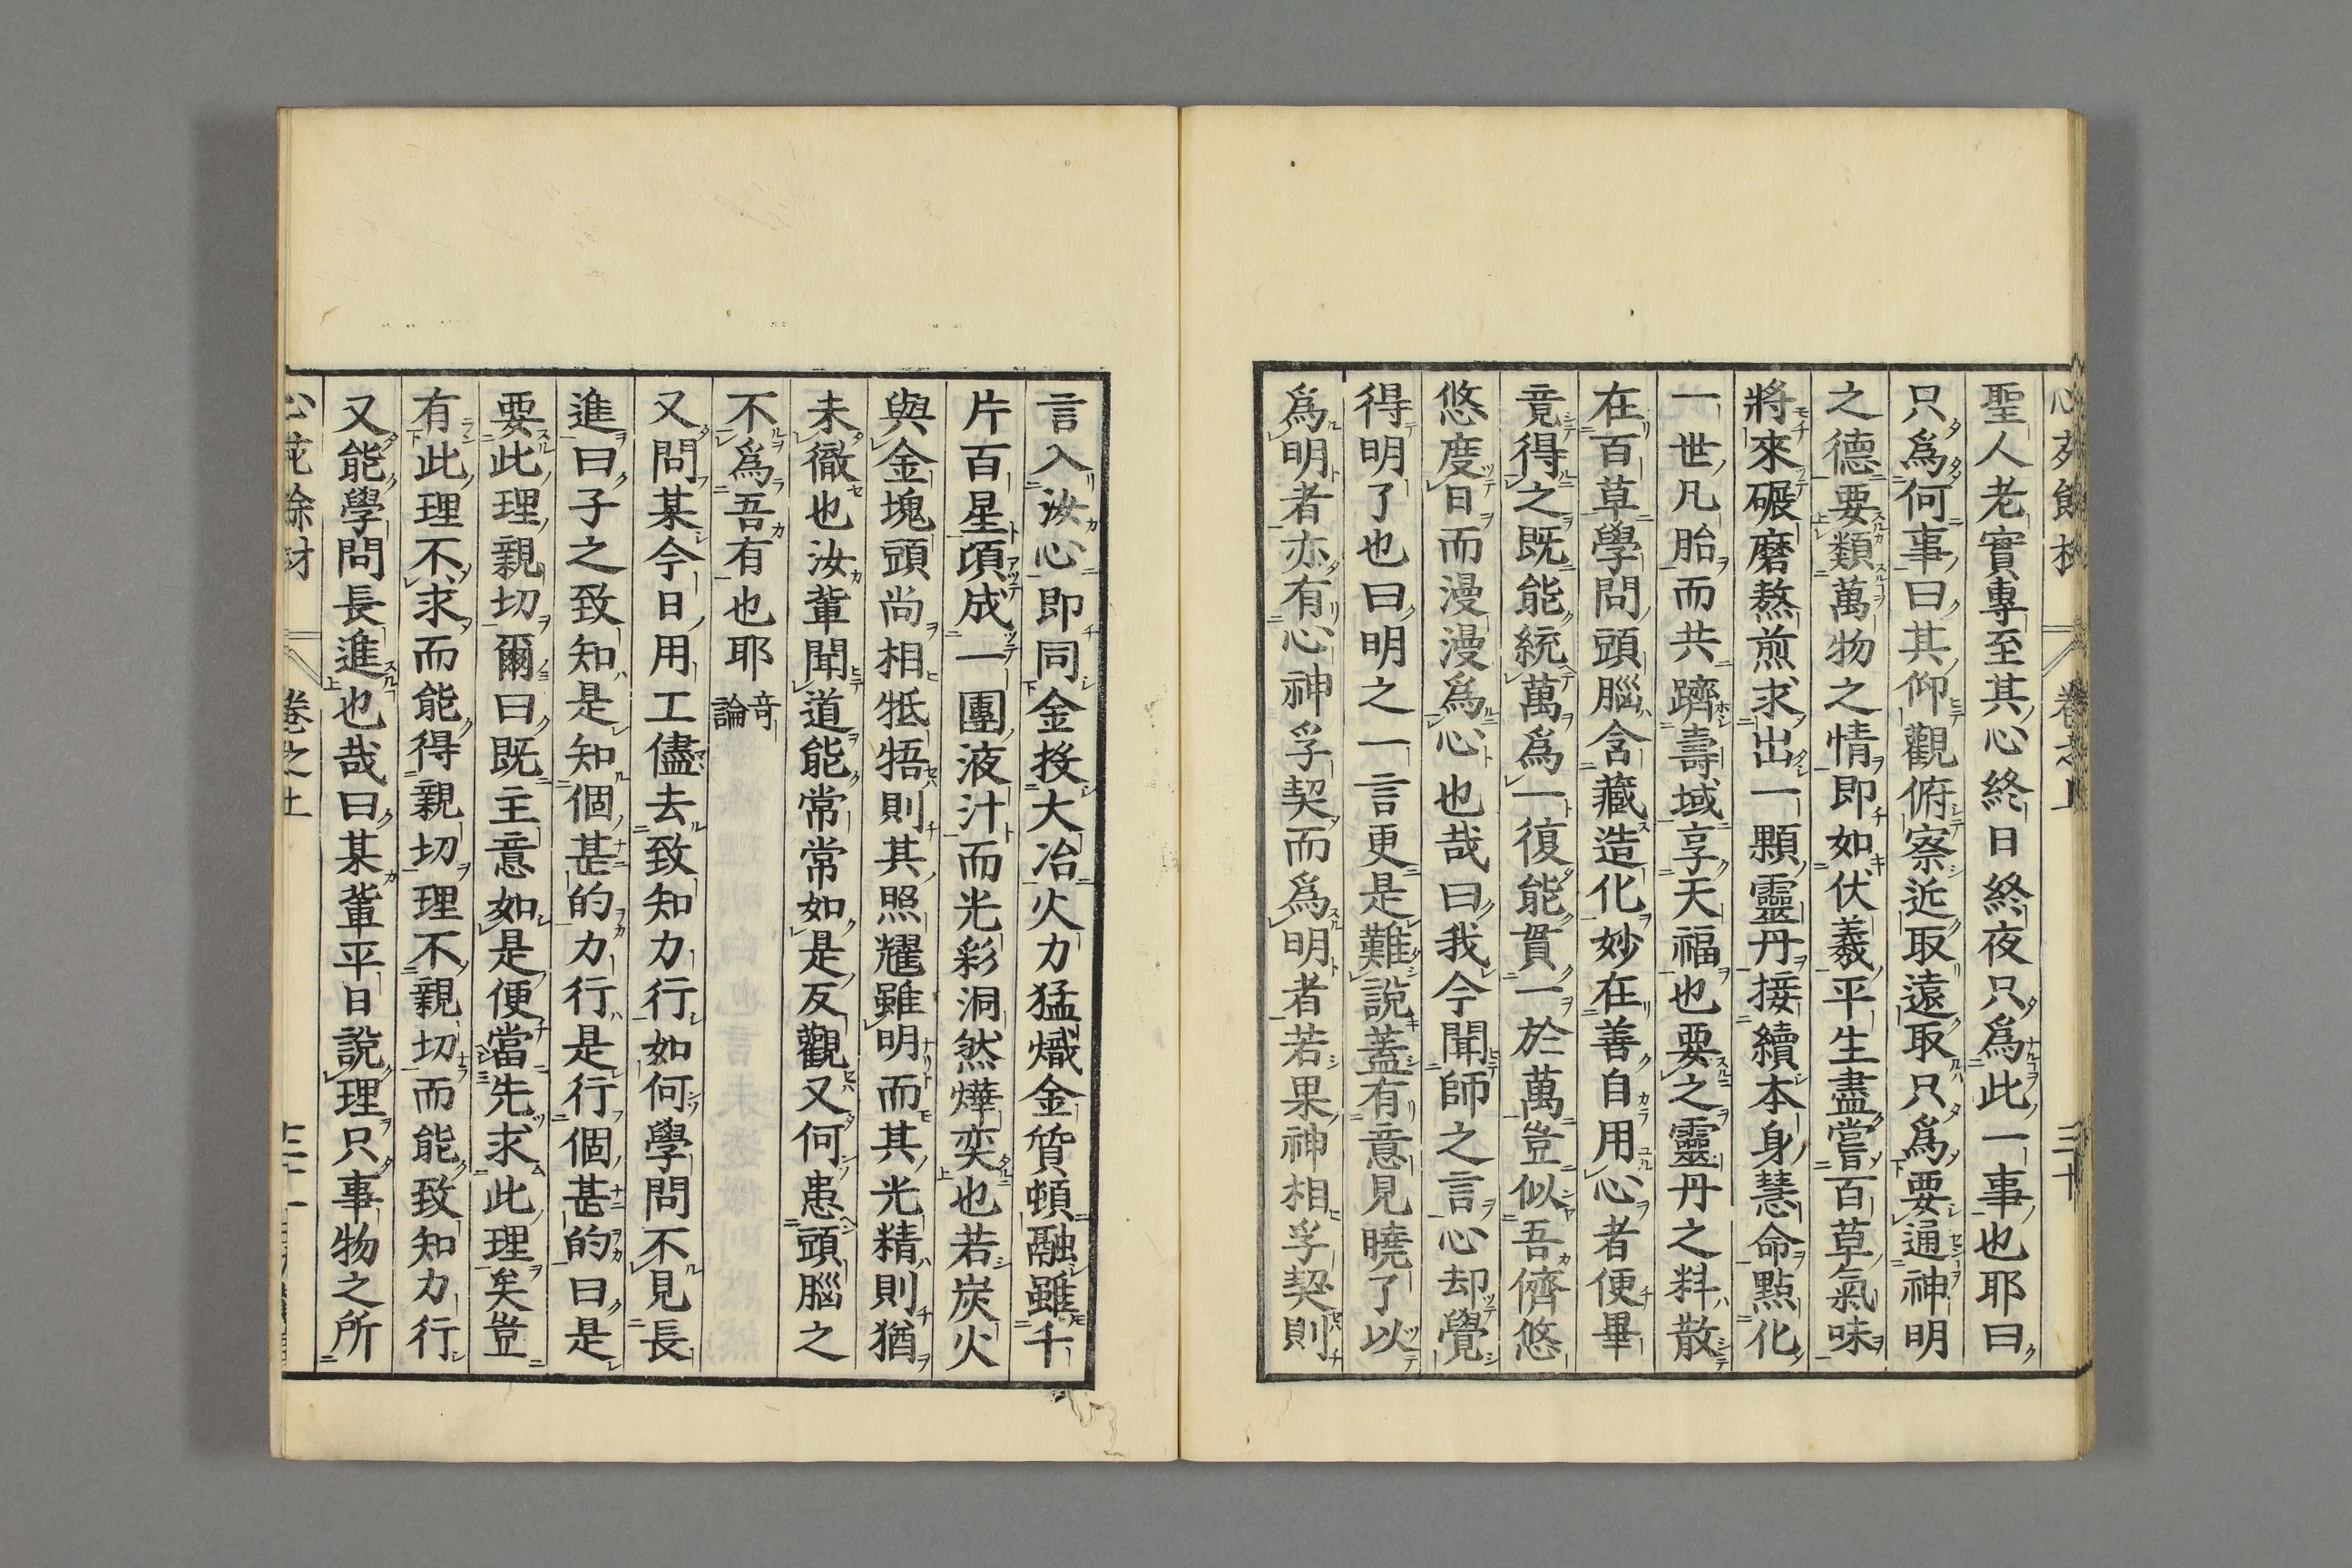 聖人老實專至其心終日終夜只爲此一事也耶曰
只爲何事曰其仰觀俯察近取遠取只爲要通神明
之德要類萬物之情即如伏羲平生盡嘗百草氣味
將來碾磨熬煎求出一顆靈丹接續本身慧命點化
一世凡胎而共躋壽域享天福也要之靈丹之料散
在百草學問頭腦含藏造化妙在善自用心者便畢
竟得之既能統萬爲一復能貫一於萬豈似吾儕悠
悠度日而漫漫爲心也哉曰我今聞師之言心却覺
得明了也曰明之一言更是難說蓋有意見曉了以
爲明者亦有心神孚契而爲明者若果神相孚契則
言入汝心即同金投大冶火力猛熾金質頓融雖千
片百星項成一團液汁而光彩洞然燁奕也若炭火
與金塊頭尚相牴牾則其照耀雖明而其光精則猶
未徹也汝輩聞道能常常如是反觀又何患頭腦之
不爲吾有也耶 奇論
又問某今日用工儘去致知力行如何學問不見長
進曰子之致知是知個甚的力行是行個甚的曰是
要此理親切爾曰既主意如是便當先求此理矣豈
有此理不求而能得親切理不親切而能致知力行
又能學問長進也哉曰某輩平日說理只事物之所
卷之上